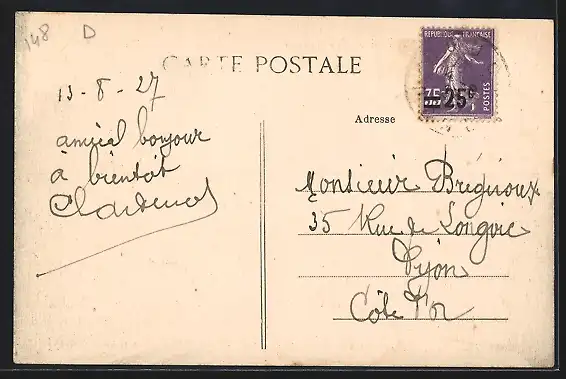 148 D
CARTE POSTALE
REPUBLIQUE FRANÇAISE
35 25c
POSTES
Adresse
13-8-27
amical bonjour
à bientôt
Monsieur Brégnioux
35 Rue de Longvic
Dijon
Côte d'Or